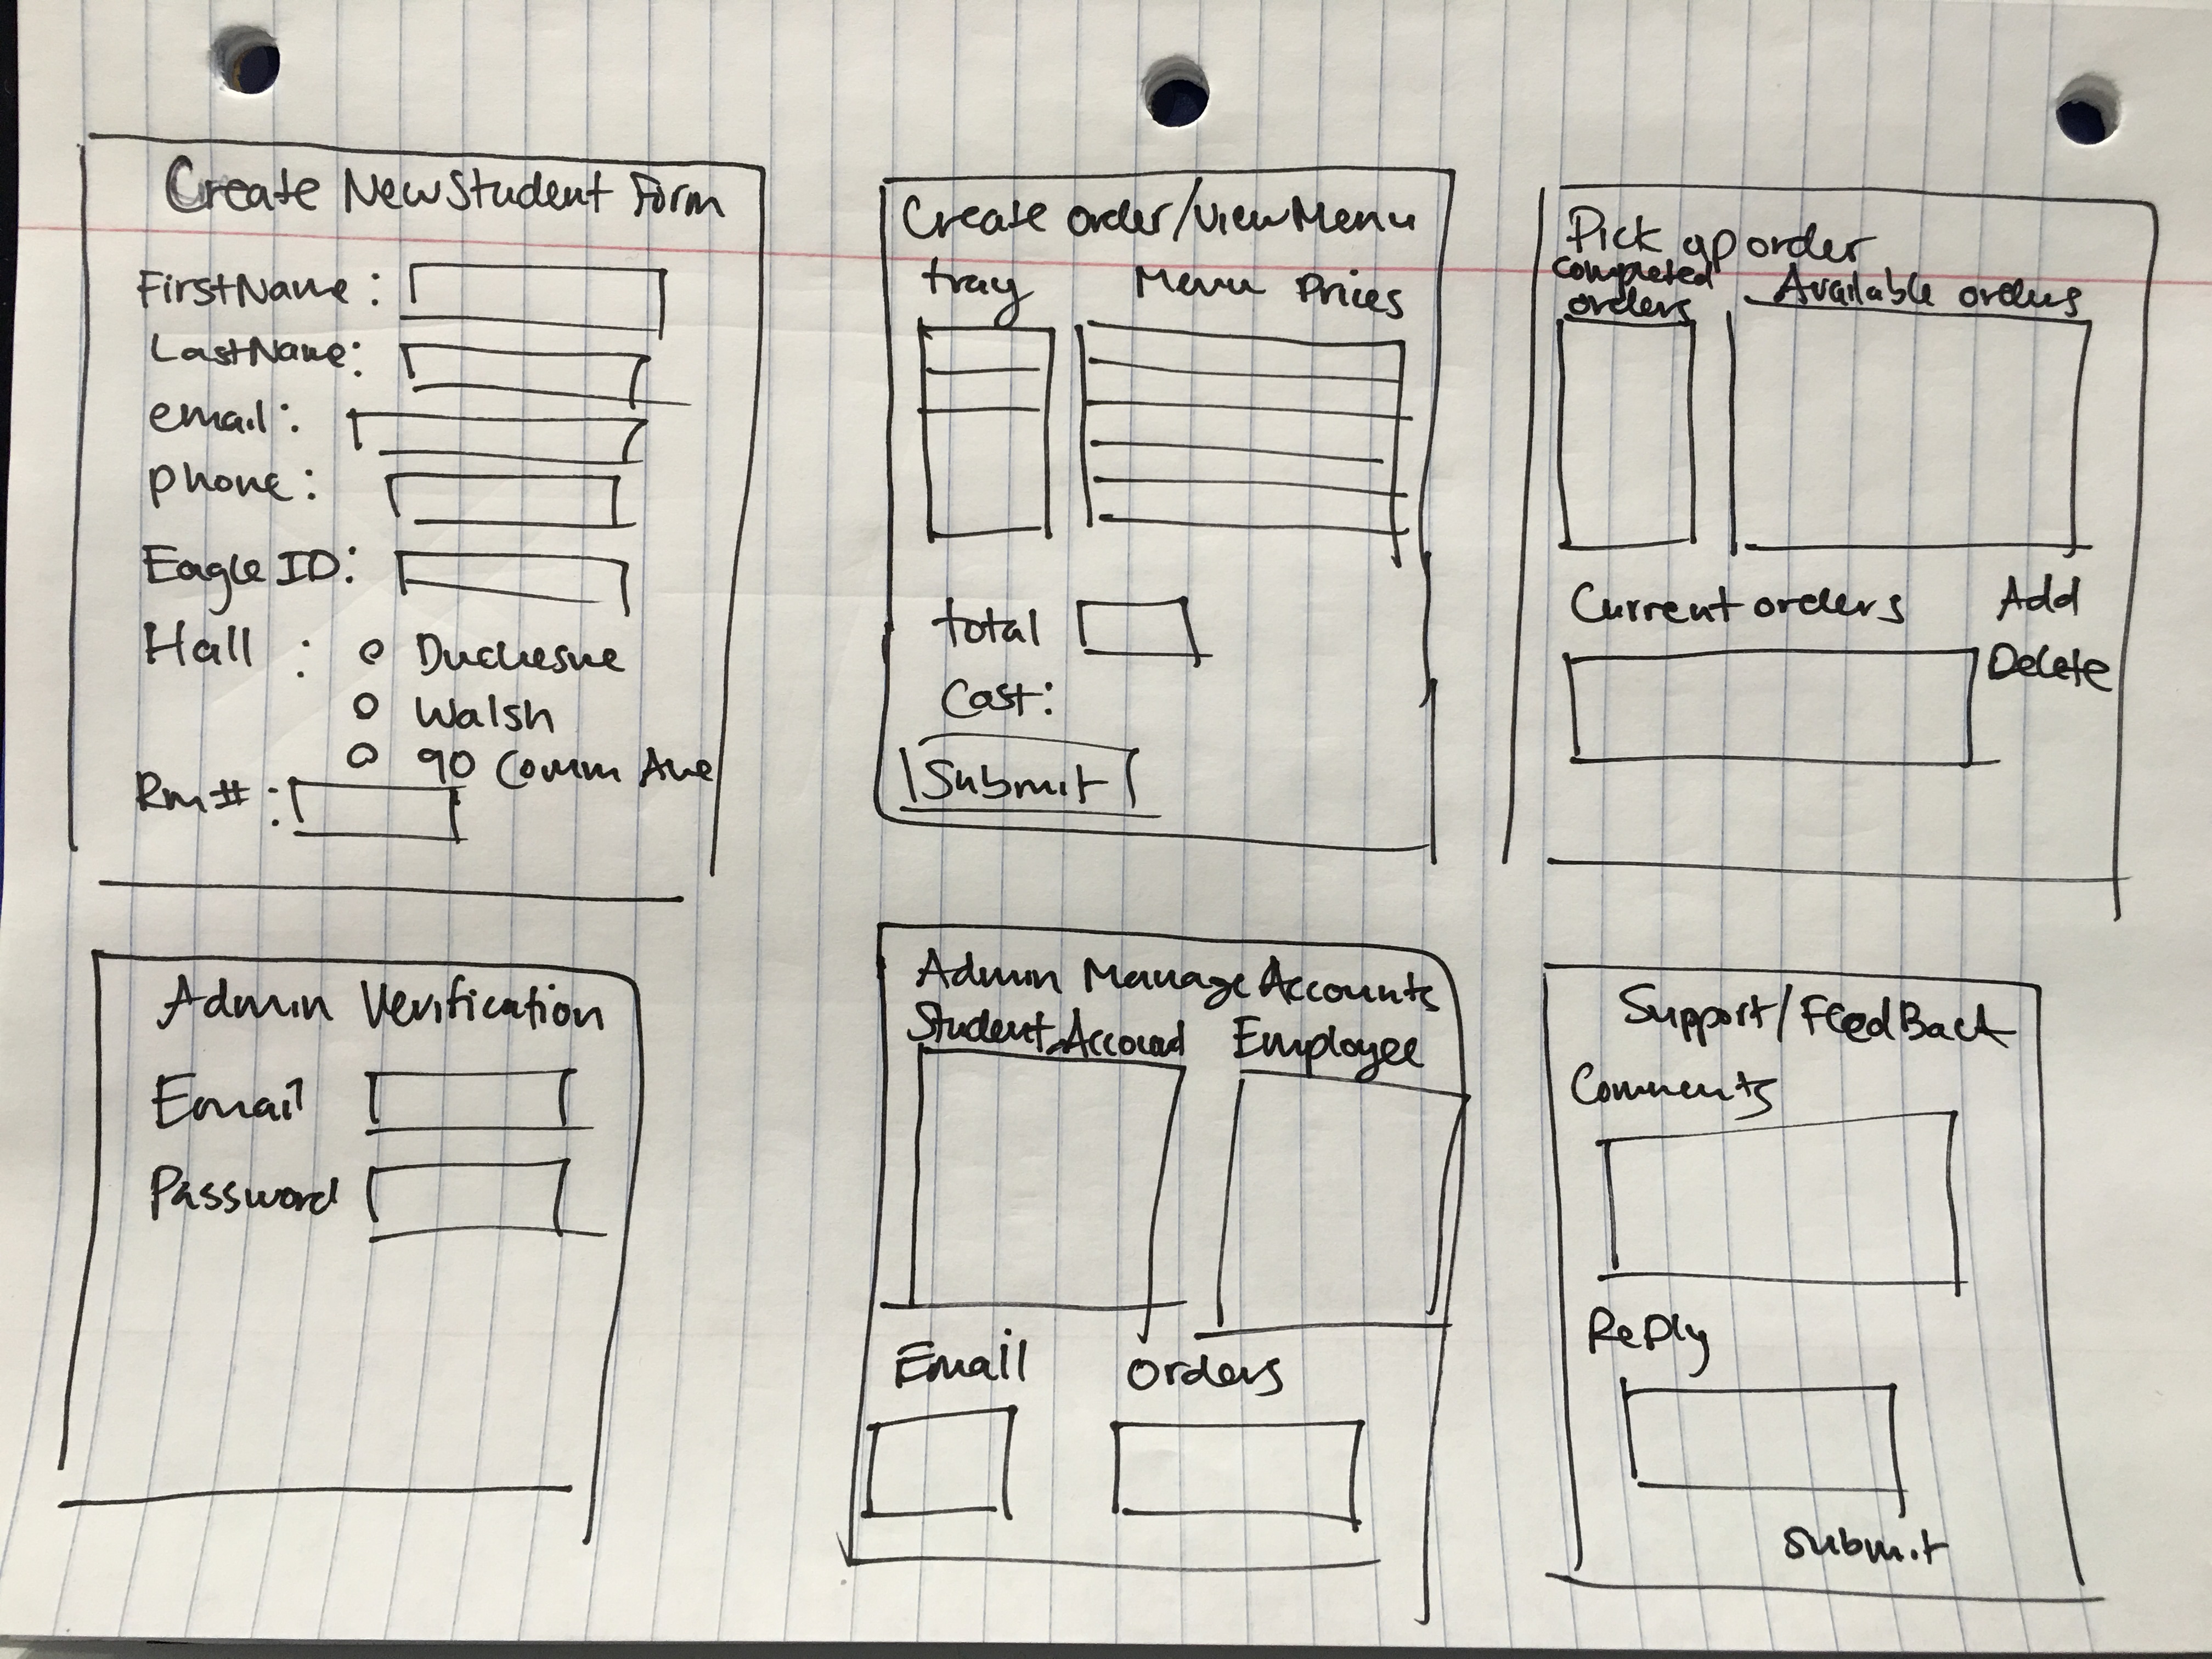 Create New Student Form
First Name :
Last Name:
email :
phone :
Eagle ID:
Hall : Duchesne
Walsh
90 Comm Ave
Rm# :
Create order/View Menu
tray Menu Prices
total
Cost:
Submit
Pick up order
completed
orders
Available orders
Current orders Add
Delete
Admin Verification
Email
Password
Admin Manage Accounts
Student Account Employee
Email Orders
Support/FeedBack
Comments
Reply
Submit